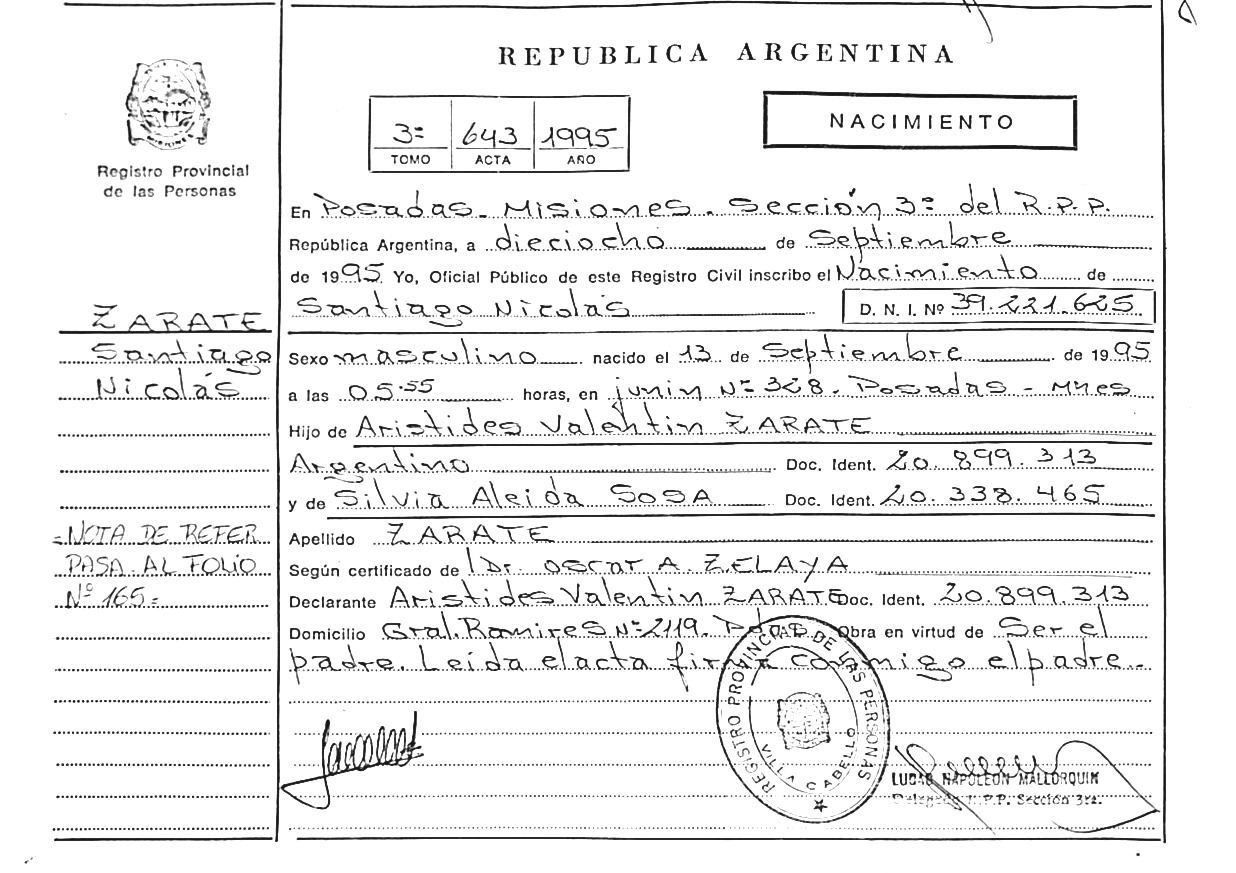 REPUBLICA ARGENTINA
Registro Provincial
de las Personas
3º 643 1995
TOMO ACTA AÑO
NACIMIENTO
En Posadas - Misiones. Sección 3º del R.P.P.
República Argentina, a dieciocho de Septiembre
de 1995 Yo, Oficial Público de este Registro Civil inscribo el Nacimiento de
Santiago Nicolás D. N. I. Nº 39.221.625
ZARATE
Santiago
Nicolás
Sexo masculino nacido el 13 de Septiembre de 1995
a las 05.55 horas, en junin Nº 328. Posadas - Mnes
Hijo de Aristides Valentin ZARATE
Argentino Doc. Ident. 20.899.313
y de Silvia Aleida SOSA Doc. Ident. 20.338.465
Apellido ZARATE
Según certificado de Dr. Oscar A. ZELAYA
Declarante Aristides Valentin ZARATE Doc. Ident. 20.899.313
Domicilio Gral. Ramires Nº 2119. Pdas. Obra en virtud de Ser el
padre. Leída el acta firma conmigo el padre.-
=NOTA DE REFER
PASA AL FOLIO
Nº 165=
REGISTRO PROVINCIAL DE LAS PERSONAS
VILLA CABELLO
LUCAS NAPOLEON MALLORQUIN
Delegado R.P.P. Sección 3ra.